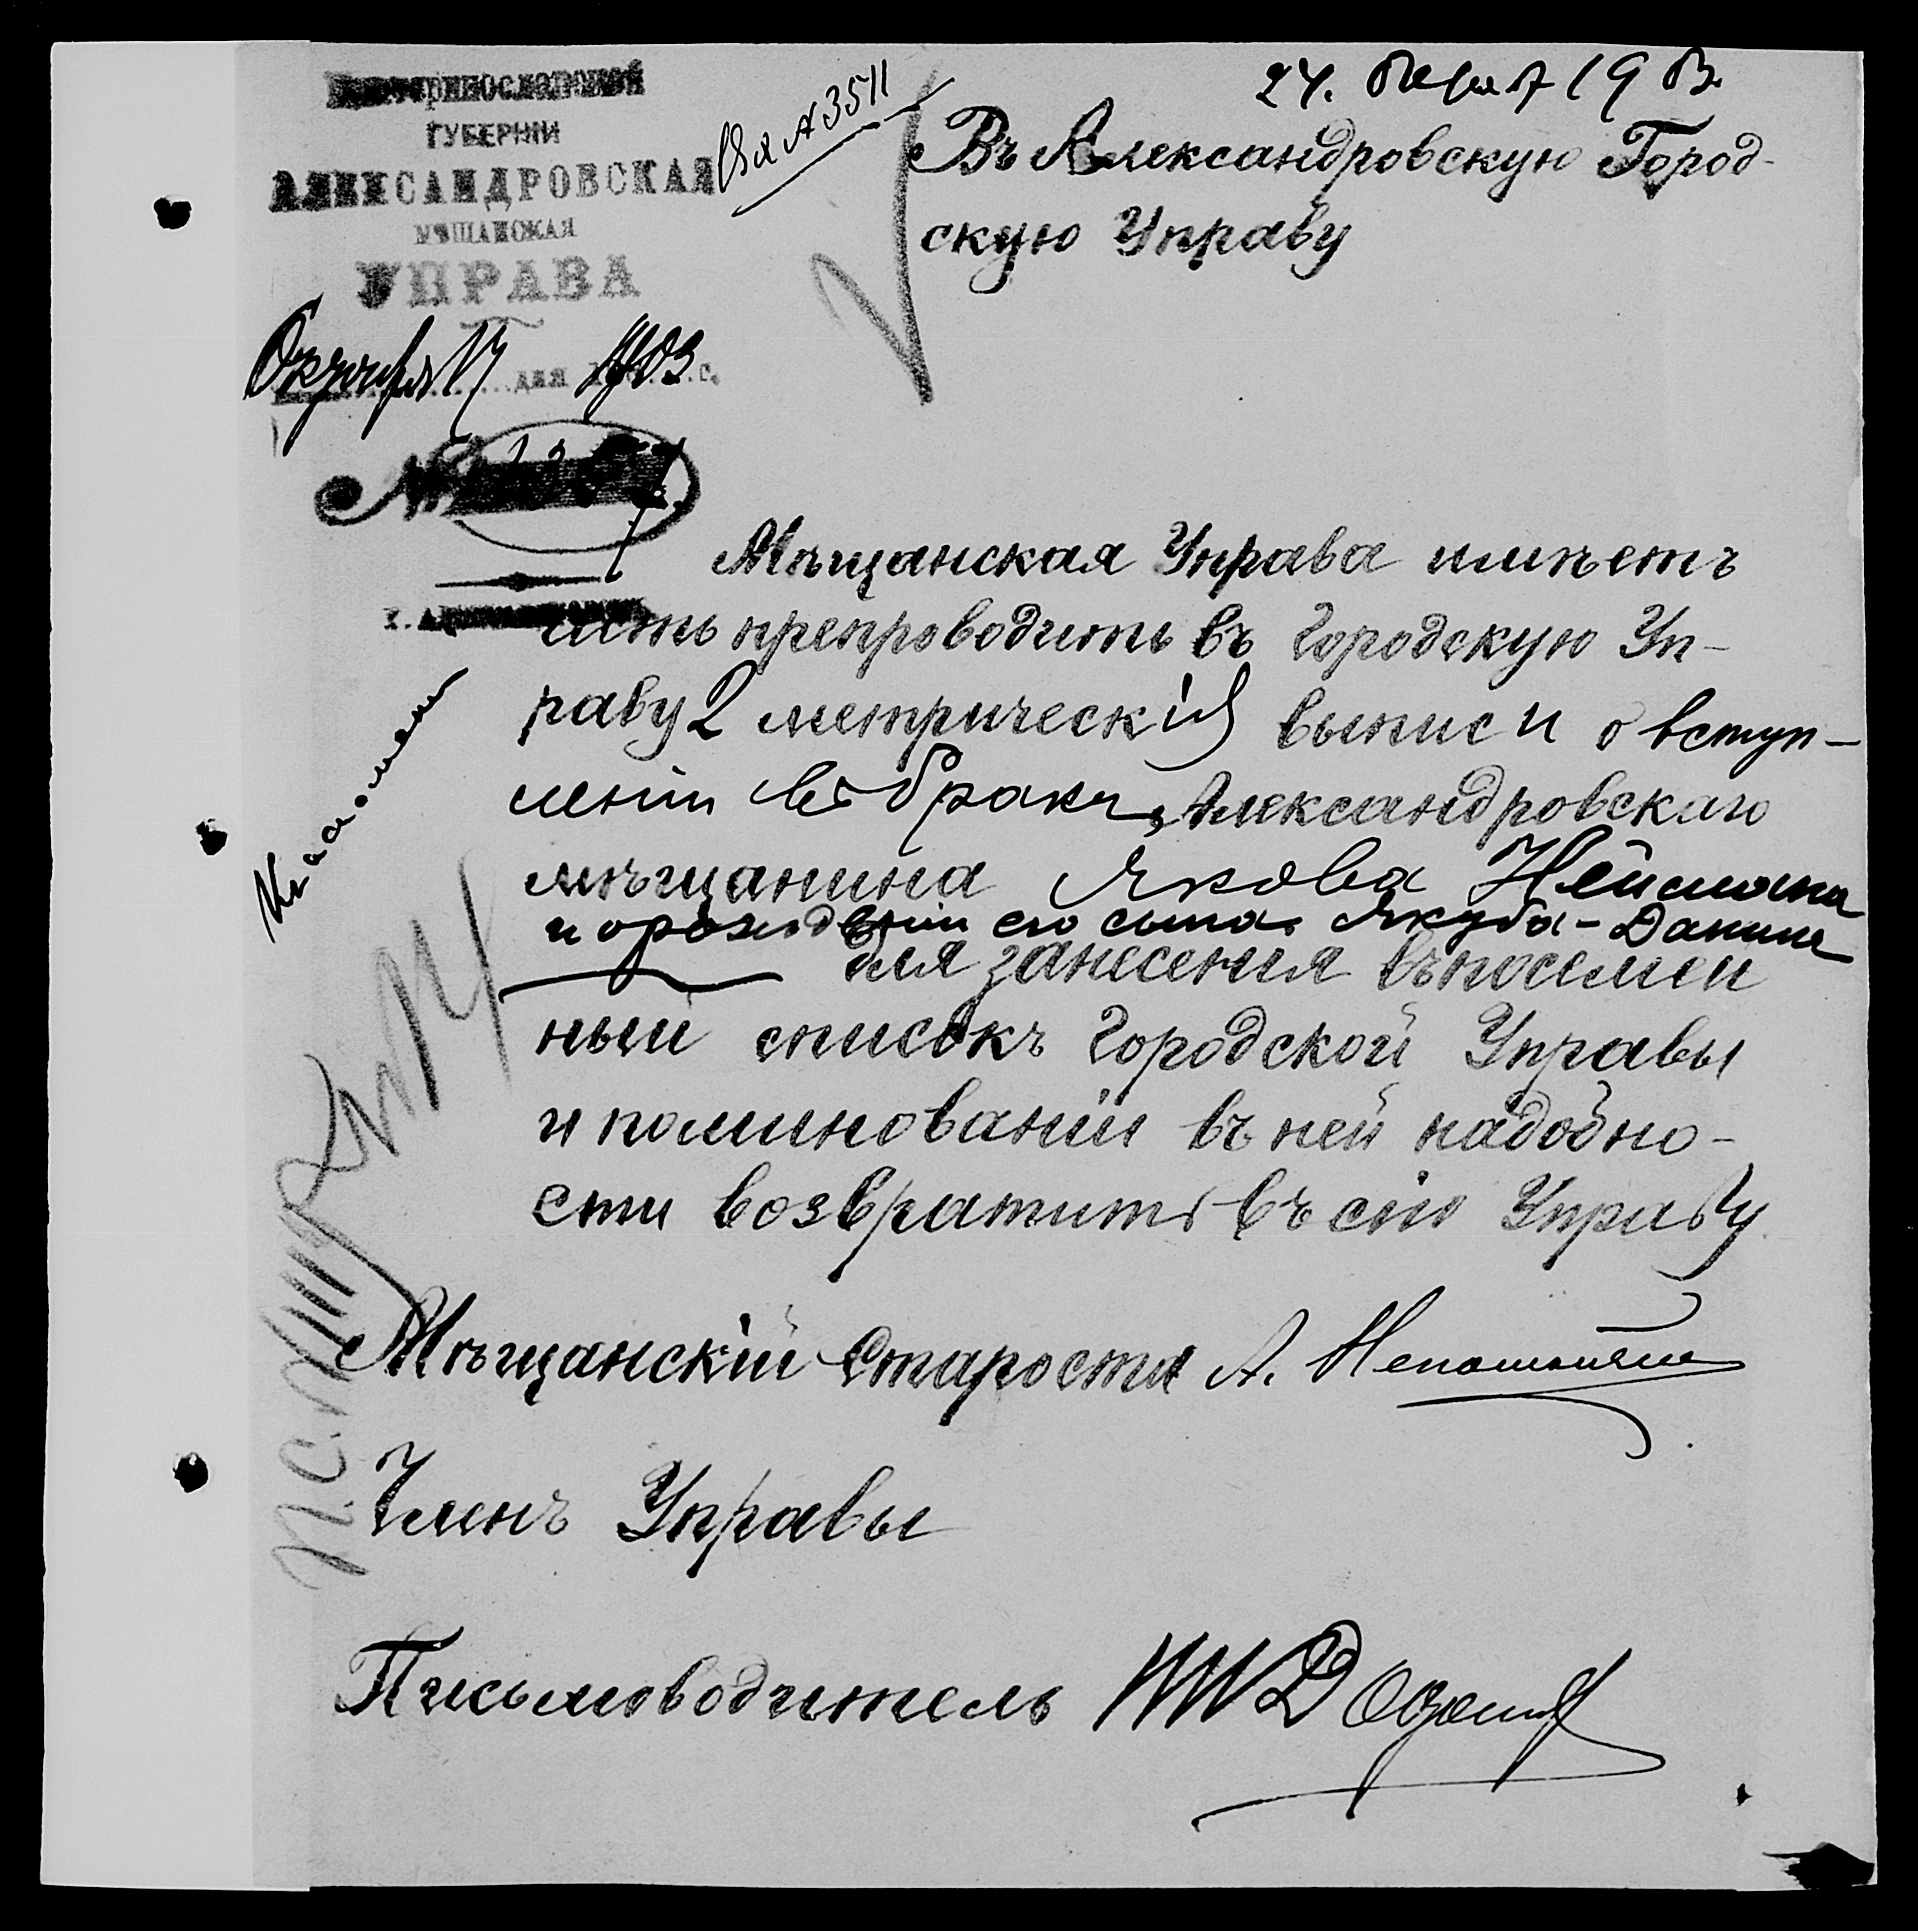 Екатеринославской
ГУБЕРНІИ
АЛЕКСАНДРОВСКАЯ
МѢЩАНСКАЯ
УПРАВА
Октября 17 дня 1903 г.
№
Вх А 3511
24. 1903
Въ Александровскую Город-
скую Управу
Мѣщанская Управа имѣетъ
честь препроводить въ Городскую Уп-
раву 2 метрическія выписи о вступ-
леніи въ бракъ, Александровскаго
мѣщанина Якова Неймана
и о рожденіи его сына Якуба-Данила
для занесенія въ посемей
ный списокъ Городской Управы
и по минованіи въ ней надобно-
сти возвратить въ сію Управу.
Мѣщанскій Староста А.
Членъ Управы
Письмоводитель